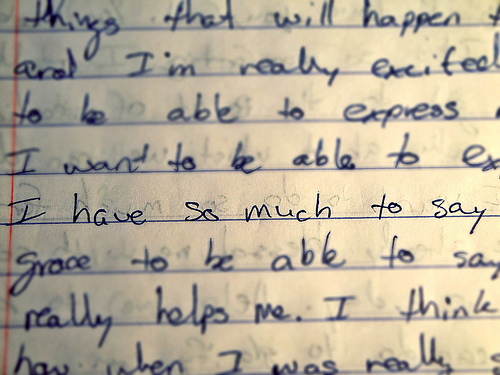 things that will happen
and I'm really excited
to be able to express
I want to be able to ex
I have so much to say
grace to be able to say
really helps me. I think
how when I was really